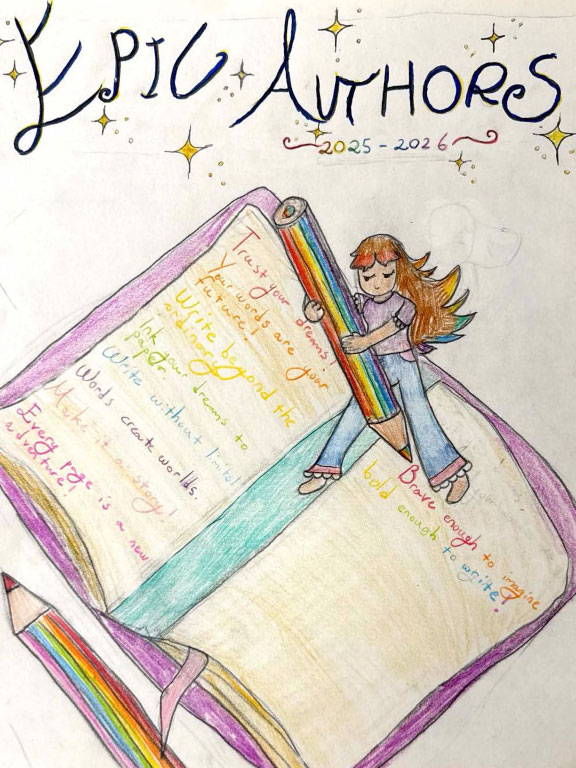 EPIC AUTHORS
2025 - 2026
Trust your dreams!
Your words are your
future!
Write beyond the
ordinary!
Ink your dreams to
paper.
Write without limits!
Words create worlds.
Make it a story!
Every page is a new
adventure!
Brave enough to imagine
bold enough to write!